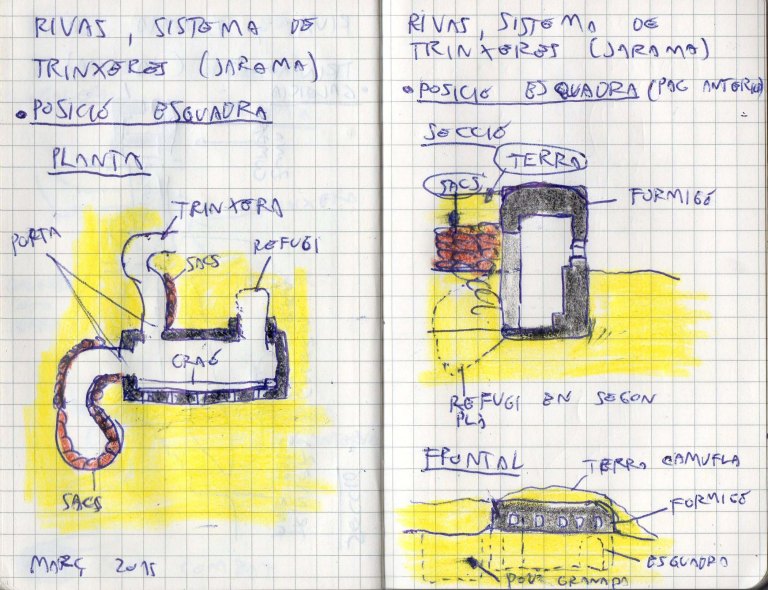 RIVAS, SISTEMA DE
TRINXERES (JARAMA)
• POSICIÓ ESQUADRA
PLANTA
TRINXERA
PORTA
REFUGI
SACS
CRAÓ
SACS
MARÇ 2015
RIVAS, SISTEMA DE
TRINXERES (JARAMA)
• POSICIÓ ESQUADRA (PAG ANTERIO
SECCIÓ
TERRA
SACS
FORMIGÓ
REFUGI EN SEGON
PLÀ
FRONTAL
TERRA CAMUFLA
FORMIGÓ
ESQUADRA
POU GRANADA